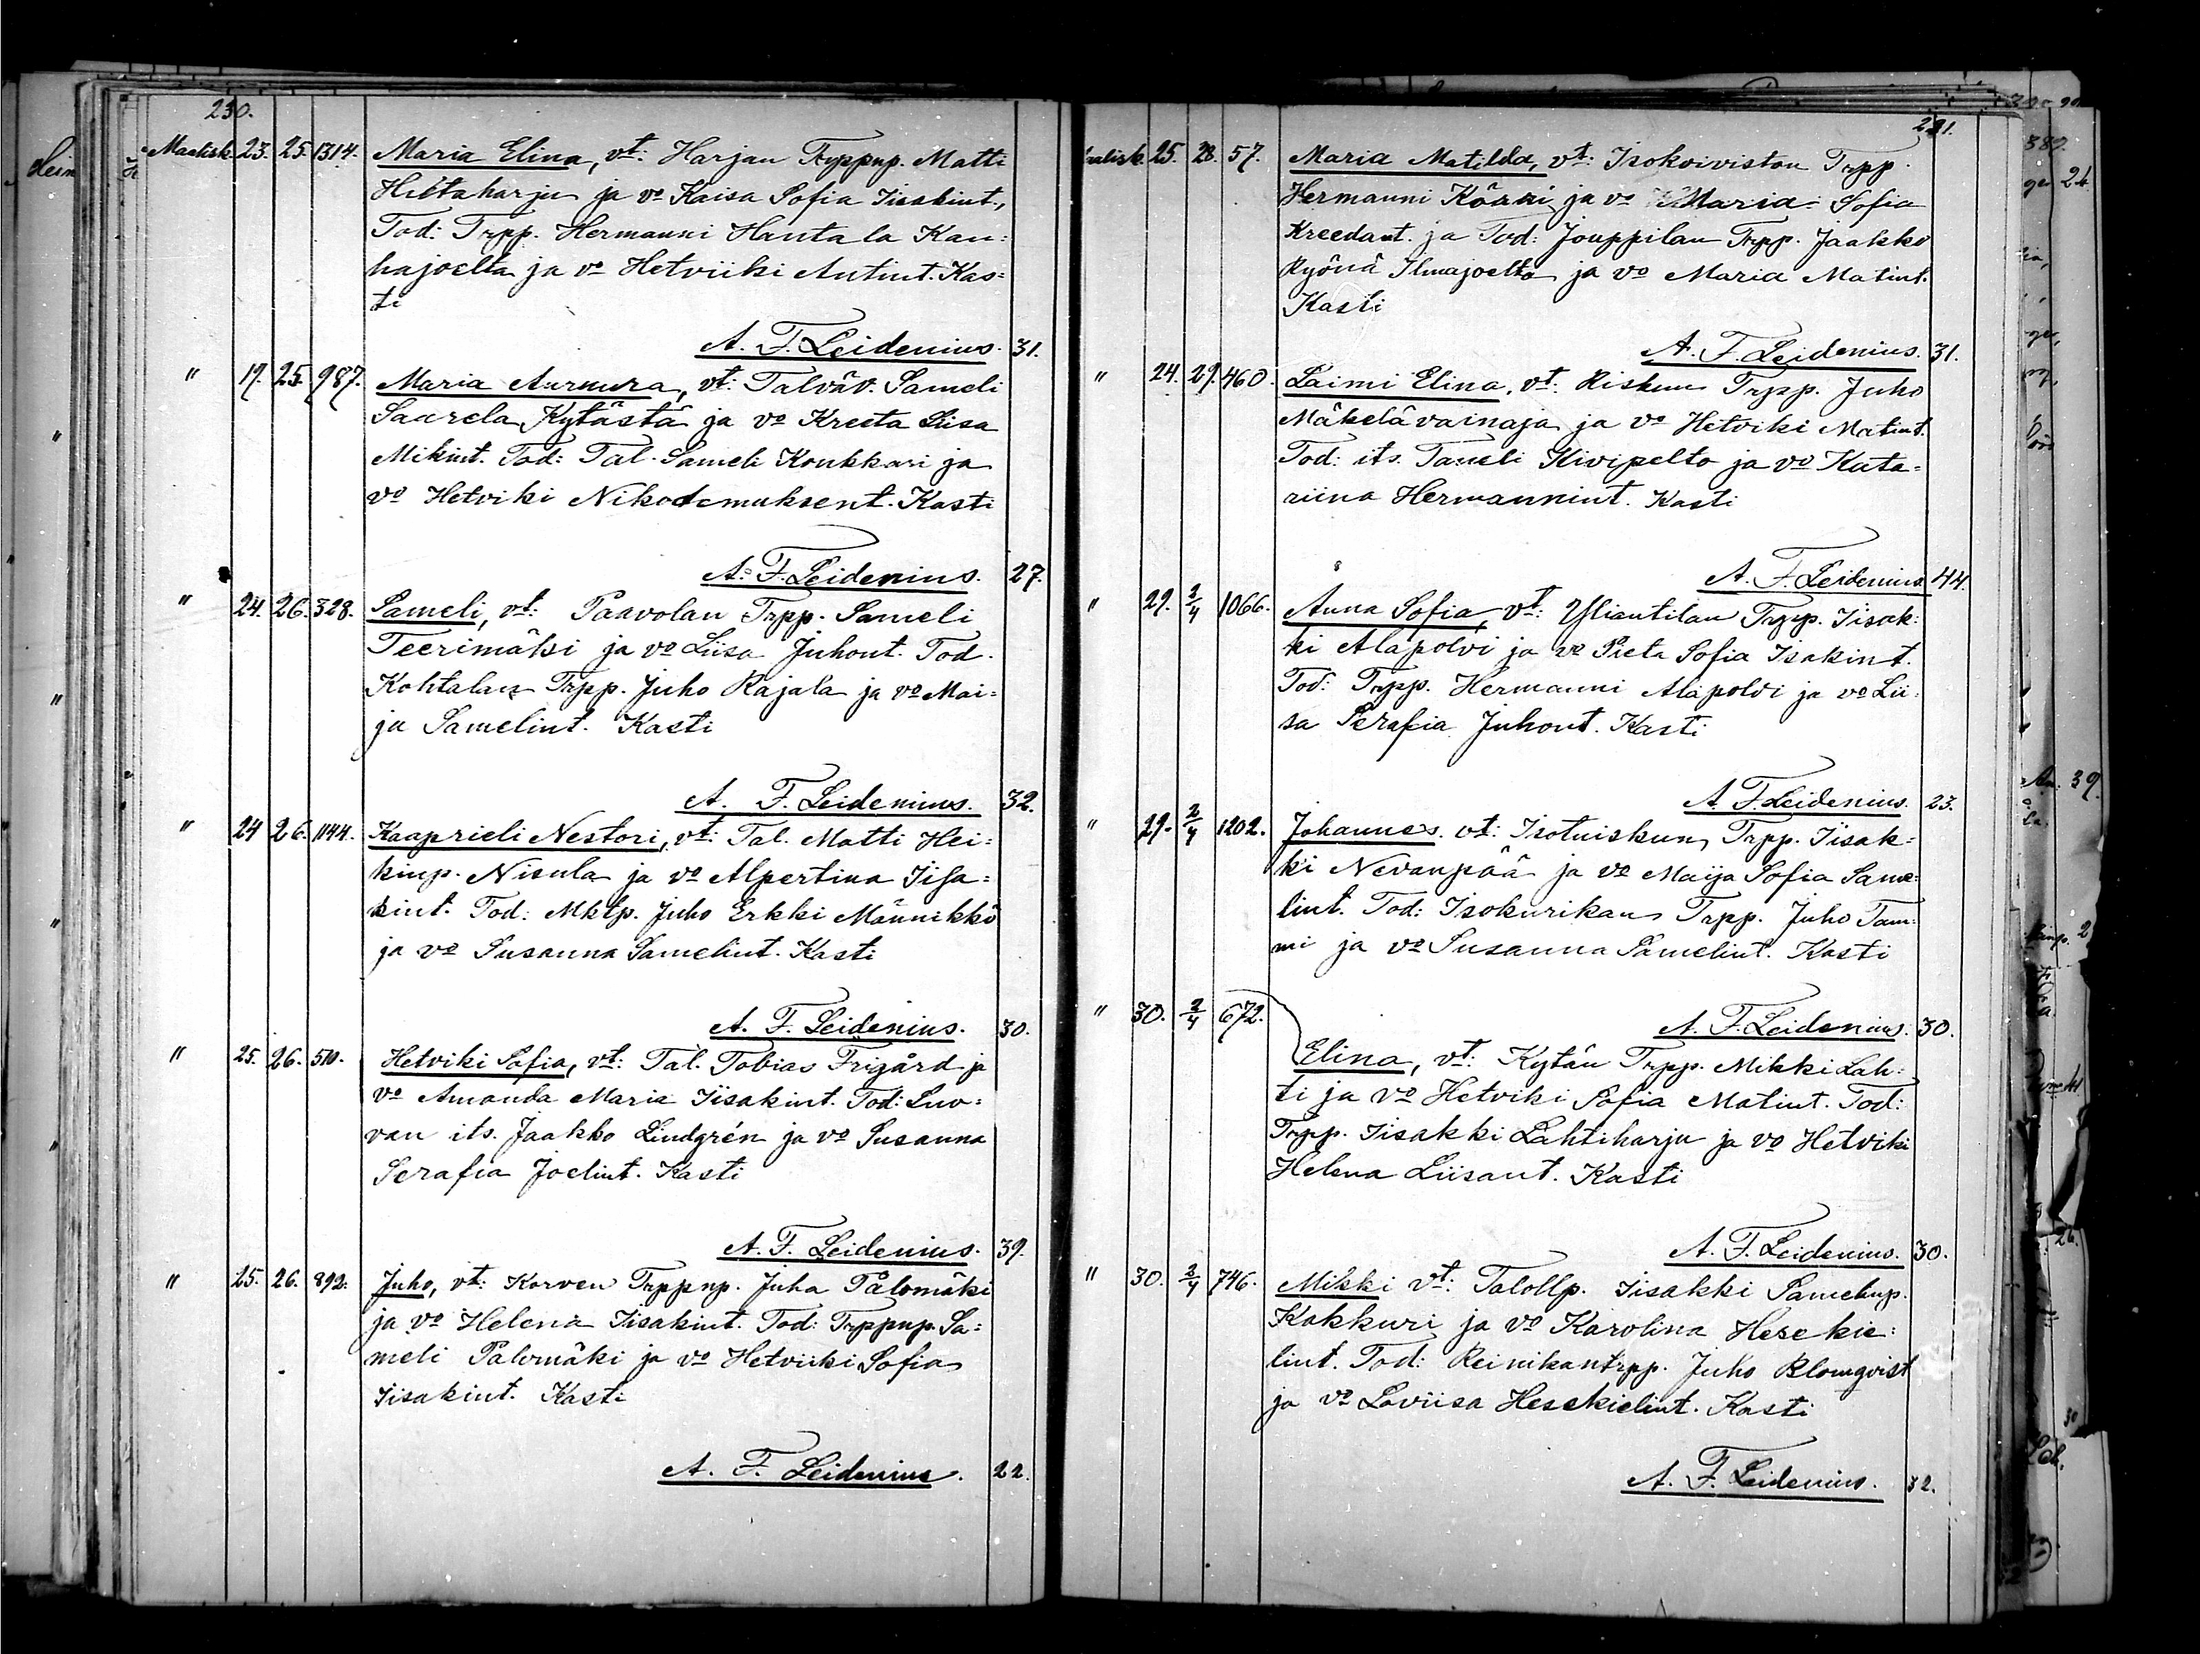 230.
Maalisk. 23. 25. 1314. Maria Elina, vt: Harjan Trppnp. Matti
Hietaharju ja vo Kaisa Sofia Iisakint.,
Tod: Trpp. Hermanni Hantala Kau=
hajoelta ja vo Hetviiki Antint. Kas=
ti
A. F. Leidenius. 31.
" 19. 25. 987. Maria, vt: Talväv. Sameli
Saarela Kytästä ja vo Kreeta Liisa
Mikint. Tod: Tal. Sameli Koukkari ja
vo Hetviki Nikodemuksent. Kasti
A. F. Leidenius. 27.
" 24. 26. 328. Sameli, vt: Paavolan Trpp. Sameli
Teerimäki ja vo Liisa Juhont. Tod.
Kohtalan Trpp. Juho Rajala ja vo Mai=
ja Samelint. Kasti
A. F. Leidenius. 32.
" 24 26. 1144. Kaaprieli Nestori, vt: Tal. Matti Hei=
kinp. Nisula ja vo Alpertina Iisa=
kint. Tod: Mktp. Juho Erkki Männikkö
ja vo Susanna Samelint. Kasti
A. F. Leidenius. 30.
" 25. 26. 510. Hetviki Sofia, vt: Tal. Tobias Frigård ja
vo Amanda Maria Iisakint. Tod: Luo=
van its. Jaakko Lindgrén ja vo Susanna
Serafia Joelint. Kasti
A. F. Leidenius. 39.
" 25. 26. 892. Juho, vt: Korven Trppnp. Juha Palomäki
ja vo Helena Iisakint. Tod: Trppnp. Sa=
meli Palomäki ja vo Hetviiki Sofia
Iisakint. Kasti
A. F. Leidenius. 22.
231.
25. 28. 57. Maria Matilda, vt: Isokoiviston Trpp.
Hermanni Körri ja vo Maria Sofia
Kreedant. ja Tod: Jouppilan Trpp. Jaakko
Ryönä Ilmajoelta ja vo Maria Matint.
Kasti
A. F. Leidenius. 31.
" 24. 29. 460. Laimi Elina, vt: Riskun Trpp. Juho
Mäkelä vainaja ja vo Hetviki Matint.
Tod: its. Taneli Kivipelto ja vo Kata=
riina Hermannint. Kasti
A. F. Leidenius 44.
" 29. 2/4 1066. Anna Sofia, vt: Yliantilan Trpp. Iisak=
ki Alapolvi ja vo Preta Sofia Isakint.
Tod: Trpp. Hermanni Alapolvi ja vo Lii=
sa Serafia Juhont. Kasti
A. F. Leidenius. 23.
" 29. 2/4 1202. Johannes. vt: Isotuiskun Trpp. Iisak=
ki Nevanpää ja vo Maija Sofia Same=
lint. Tod: Isokurikan Trpp. Juho Tam=
mi ja vo Susanna Samelint. Kasti
A. F. Leidenius. 30.
" 30. 2/4 672. Elina, vt: Kytän Trpp. Mikki Lah=
ti ja vo Hetviki Sofia Matint. Tod:
Trpp. Iisakki Lahtiharju ja vo Hetviki
Helena Liisant. Kasti
A. F. Leidenius. 30.
" 30. 2/4 746. Mikki vt: Talollp. Iisakki Samelinp.
Kakkuri ja vo Karolina Hesekie=
lint. Tod: Reinikan trpp. Juho Blomqvist
ja vo Loviisa Hesekielint. Kasti
A. F. Leidenius. 32.